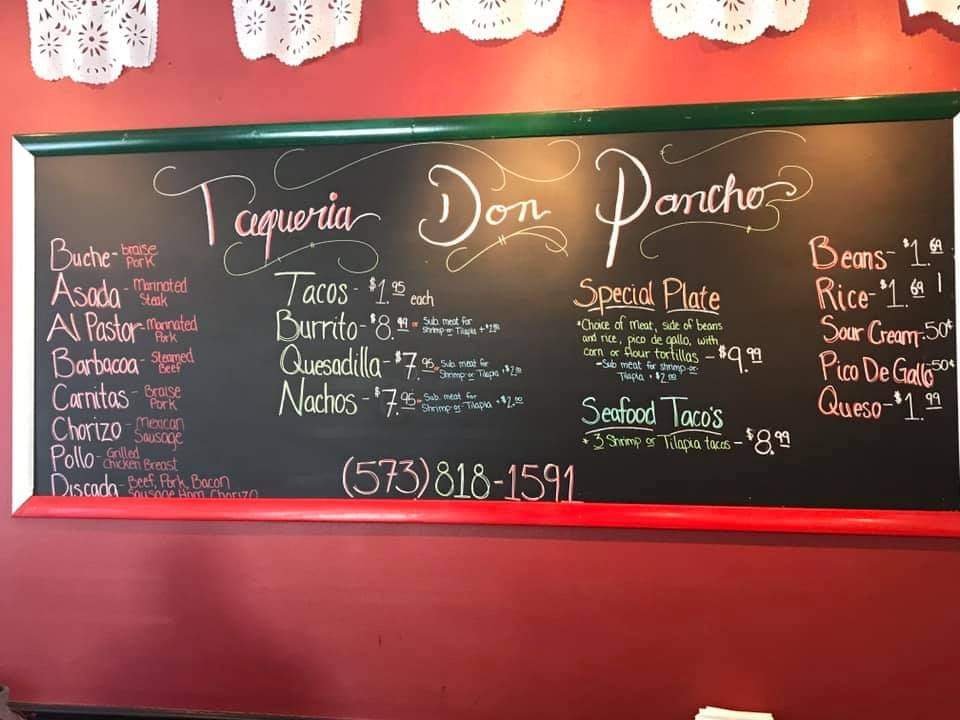 Taqueria Don Pancho
Buche - braise
Pork
Asada - Marinated
Steak
Al Pastor - marinated
Pork
Barbacoa - Steamed
Beef
Carnitas - Braise
Pork
Chorizo - Mexican
Sausage
Pollo - Grilled
Chicken Breast
Discada - Beef, Pork, Bacon
Sausage Ham Chorizo
Tacos - $1.95 each
Burrito - $8.99 - Sub. meat for
shrimp or Tilapia + $2.00
Quesadilla - $7.95 - Sub. meat for
Shrimp or Tilapia + $2.00
Nachos - $7.95 - Sub. meat for
Shrimp or Tilapia + $2.00
(573) 818-1591
Special Plate
*Choice of meat, side of beans
and rice, pico de gallo, with
corn or flour tortillas - $9.99
- Sub meat for shrimp or
Tilapia + $2.00
Seafood Taco's
* 3 Shrimp or Tilapia tacos - $8.99
Beans - $1.69
Rice - $1.69
Sour Cream - .50¢
Pico De Gallo - .50¢
Queso - $1.99